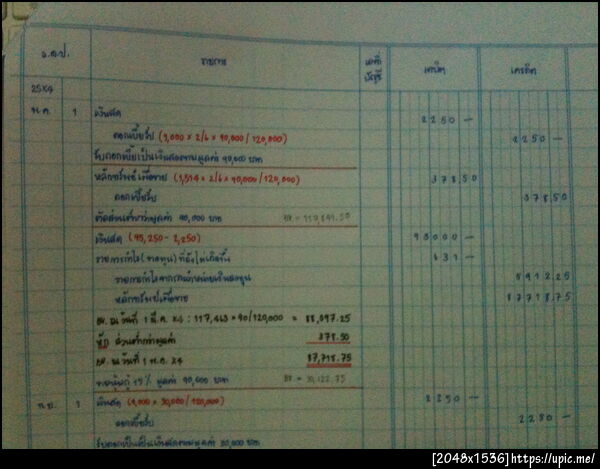 ว.ด.ป. รายการ เลขที่บัญชี เดบิต เครดิต
25X4
พ.ค. 1 เงินสด 2250 —
ดอกเบี้ยรับ (9,000 x 2/6 x 90,000/120,000) 2250 —
รับดอกเบี้ยเป็นเงินสดจากมูลค่า 90,000 บาท
หลักทรัพย์เผื่อขาย (1,514 x 2/6 x 90,000/120,000) 378.50
ดอกเบี้ยรับ 378.50
ตัดส่วนต่ำกว่ามูลค่า 90,000 บาท
เงินสด (95,250 - 2,250) 93000 —
รายการกำไร(ขาดทุน)ที่ยังไม่เกิดขึ้น 631 —
รายการกำไรจากการจำหน่ายเงินลงทุน 5912.25
หลักทรัพย์เผื่อขาย 87718.75
ณ วันที่ 1 มี.ค. X4 : 117,463 x 90/120,000 = 88,097.25
หัก ส่วนต่ำกว่ามูลค่า 378.50
ณ วันที่ 1 พ.ค. X4 87,718.75
ขายหุ้นกู้ 15% มูลค่า 90,000 บาท = 30,122.75
1 เงินสด (9,000 x 30,000/120,000) 2250 —
ดอกเบี้ยรับ 2250 —
รับดอกเบี้ยเป็นเงินสดจากมูลค่า 30,000 บาท
[2048x1536]https://upic.me/